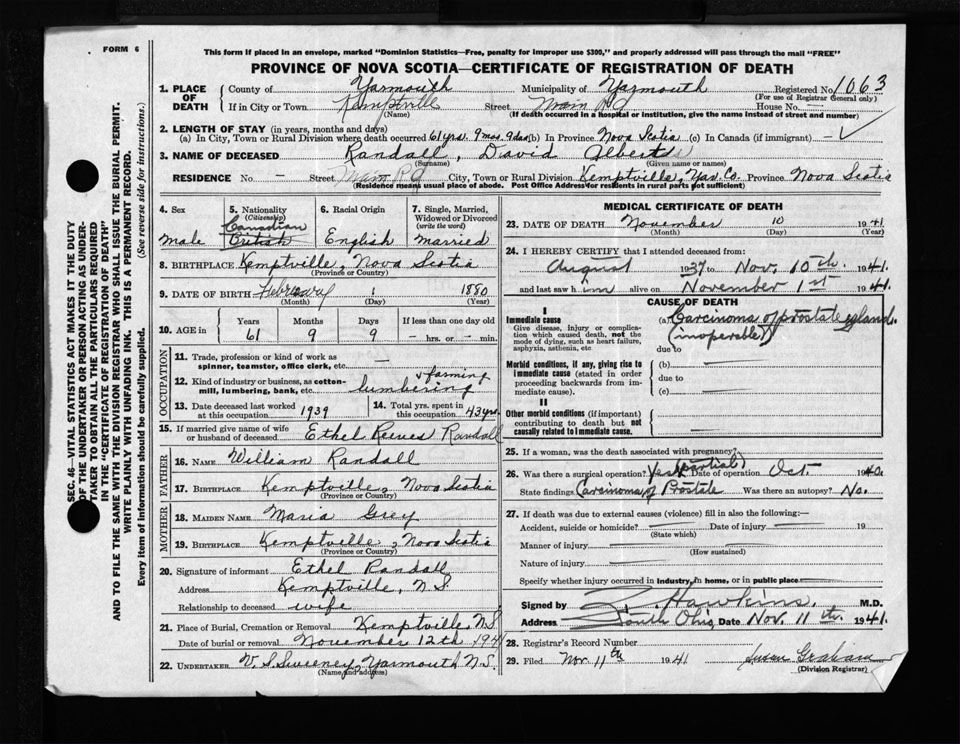 FORM 6
This form if placed in an envelope, marked "Dominion Statistics—Free, penalty for improper use $300," and properly addressed will pass through the mail "FREE"
PROVINCE OF NOVA SCOTIA—CERTIFICATE OF REGISTRATION OF DEATH
SEC. 46—VITAL STATISTICS ACT MAKES IT THE DUTY
OF THE UNDERTAKER OR PERSON ACTING AS UNDER-
TAKER TO OBTAIN ALL THE PARTICULARS REQUIRED
IN THE "CERTIFICATE OF REGISTRATION OF DEATH"
AND TO FILE THE SAME WITH THE DIVISION REGISTRAR WHO SHALL ISSUE THE BURIAL PERMIT.
WRITE PLAINLY WITH UNFADING INK. THIS IS A PERMANENT RECORD.
Every item of information should be carefully supplied. (See reverse side for instructions.)
1. PLACE OF DEATH County of Yarmouth Municipality of Yarmouth Registered No. 1063
(For use of Registrar General only)
If in City or Town Kemptville Street Main Rd House No. —
(Name) (If death occurred in a hospital or institution, give the name instead of street and number)
2. LENGTH OF STAY (in years, months and days)
(a) In City, Town or Rural Division where death occurred 61 yrs. 9 mos. 9 das (b) In Province Nova Scotia (c) In Canada (if immigrant) —
3. NAME OF DECEASED Randall, David Albert
(Surname) (Given name or names)
RESIDENCE No. — Street Main Rd City, Town or Rural Division Kemptville, Yar. Co. Province Nova Scotia
(Residence means usual place of abode. Post Office Address for residents in rural parts not sufficient)
4. Sex male
5. Nationality (Citizenship) Canadian British
6. Racial Origin English
7. Single, Married, Widowed or Divorced (write the word) married
8. BIRTHPLACE Kemptville, Nova Scotia
(Province or Country)
9. DATE OF BIRTH February 1 1880
(Month) (Day) (Year)
10. AGE in Years 61 Months 9 Days 9 If less than one day old — hrs. or — min.
OCCUPATION
11. Trade, profession or kind of work as spinner, teamster, office clerk, etc. —
12. Kind of industry or business, as cotton-mill, lumbering, bank, etc. lumbering & farming
13. Date deceased last worked at this occupation 1939
14. Total yrs. spent in this occupation 43 yrs.
15. If married give name of wife or husband of deceased Ethel Reeves Randall
FATHER
16. NAME William Randall
17. BIRTHPLACE Kemptville, Nova Scotia
(Province or Country)
MOTHER
18. MAIDEN NAME Maria Grey
19. BIRTHPLACE Kemptville, Nova Scotia
(Province or Country)
20. Signature of informant Ethel Randall
Address Kemptville, N.S
Relationship to deceased wife
21. Place of Burial, Cremation or Removal Kemptville, N.S
Date of burial or removal November 12th 1941
22. UNDERTAKER V. S. Sweeney, Yarmouth N.S.
(Name and address)
MEDICAL CERTIFICATE OF DEATH
23. DATE OF DEATH November 10 1941
(Month) (Day) (Year)
24. I HEREBY CERTIFY that I attended deceased from:
August 1937 to Nov. 10th. 1941.
and last saw him alive on November 1st 1941.
CAUSE OF DEATH
I
Immediate cause
Give disease, injury or complication which caused death, not the mode of dying, such as heart failure, asphyxia, asthenia, etc
(a) Carcinoma of prostate gland.
(inoperable)
due to
Morbid conditions, if any, giving rise to immediate cause (stated in order proceeding backwards from immediate cause).
(b)
due to
(c)
II
Other morbid conditions (if important) contributing to death but not causally related to immediate cause.
25. If a woman, was the death associated with pregnancy?
26. Was there a surgical operation? Yes (partial) Date of operation Oct. 1940.
State findings Carcinoma of Prostate Was there an autopsy? No.
27. If death was due to external causes (violence) fill in also the following:—
Accident, suicide or homicide? — Date of injury — 19
(State which)
Manner of injury —
(How sustained)
Nature of injury —
Specify whether injury occurred in industry, in home, or in public place —
Signed by Hawkins. M.D.
Address South Ohio Date Nov. 11th. 1941.
28. Registrar's Record Number
29. Filed Nov. 11th 1941 Susan Graham
(Division Registrar)